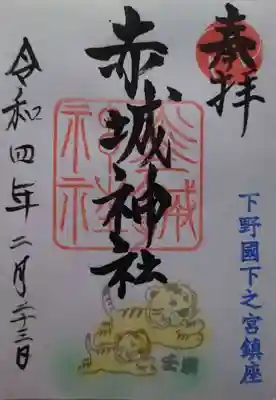 奉拝
下野國下之宮鎮座
赤城神社
赤城神社
令和四年二月二十三日
壬寅